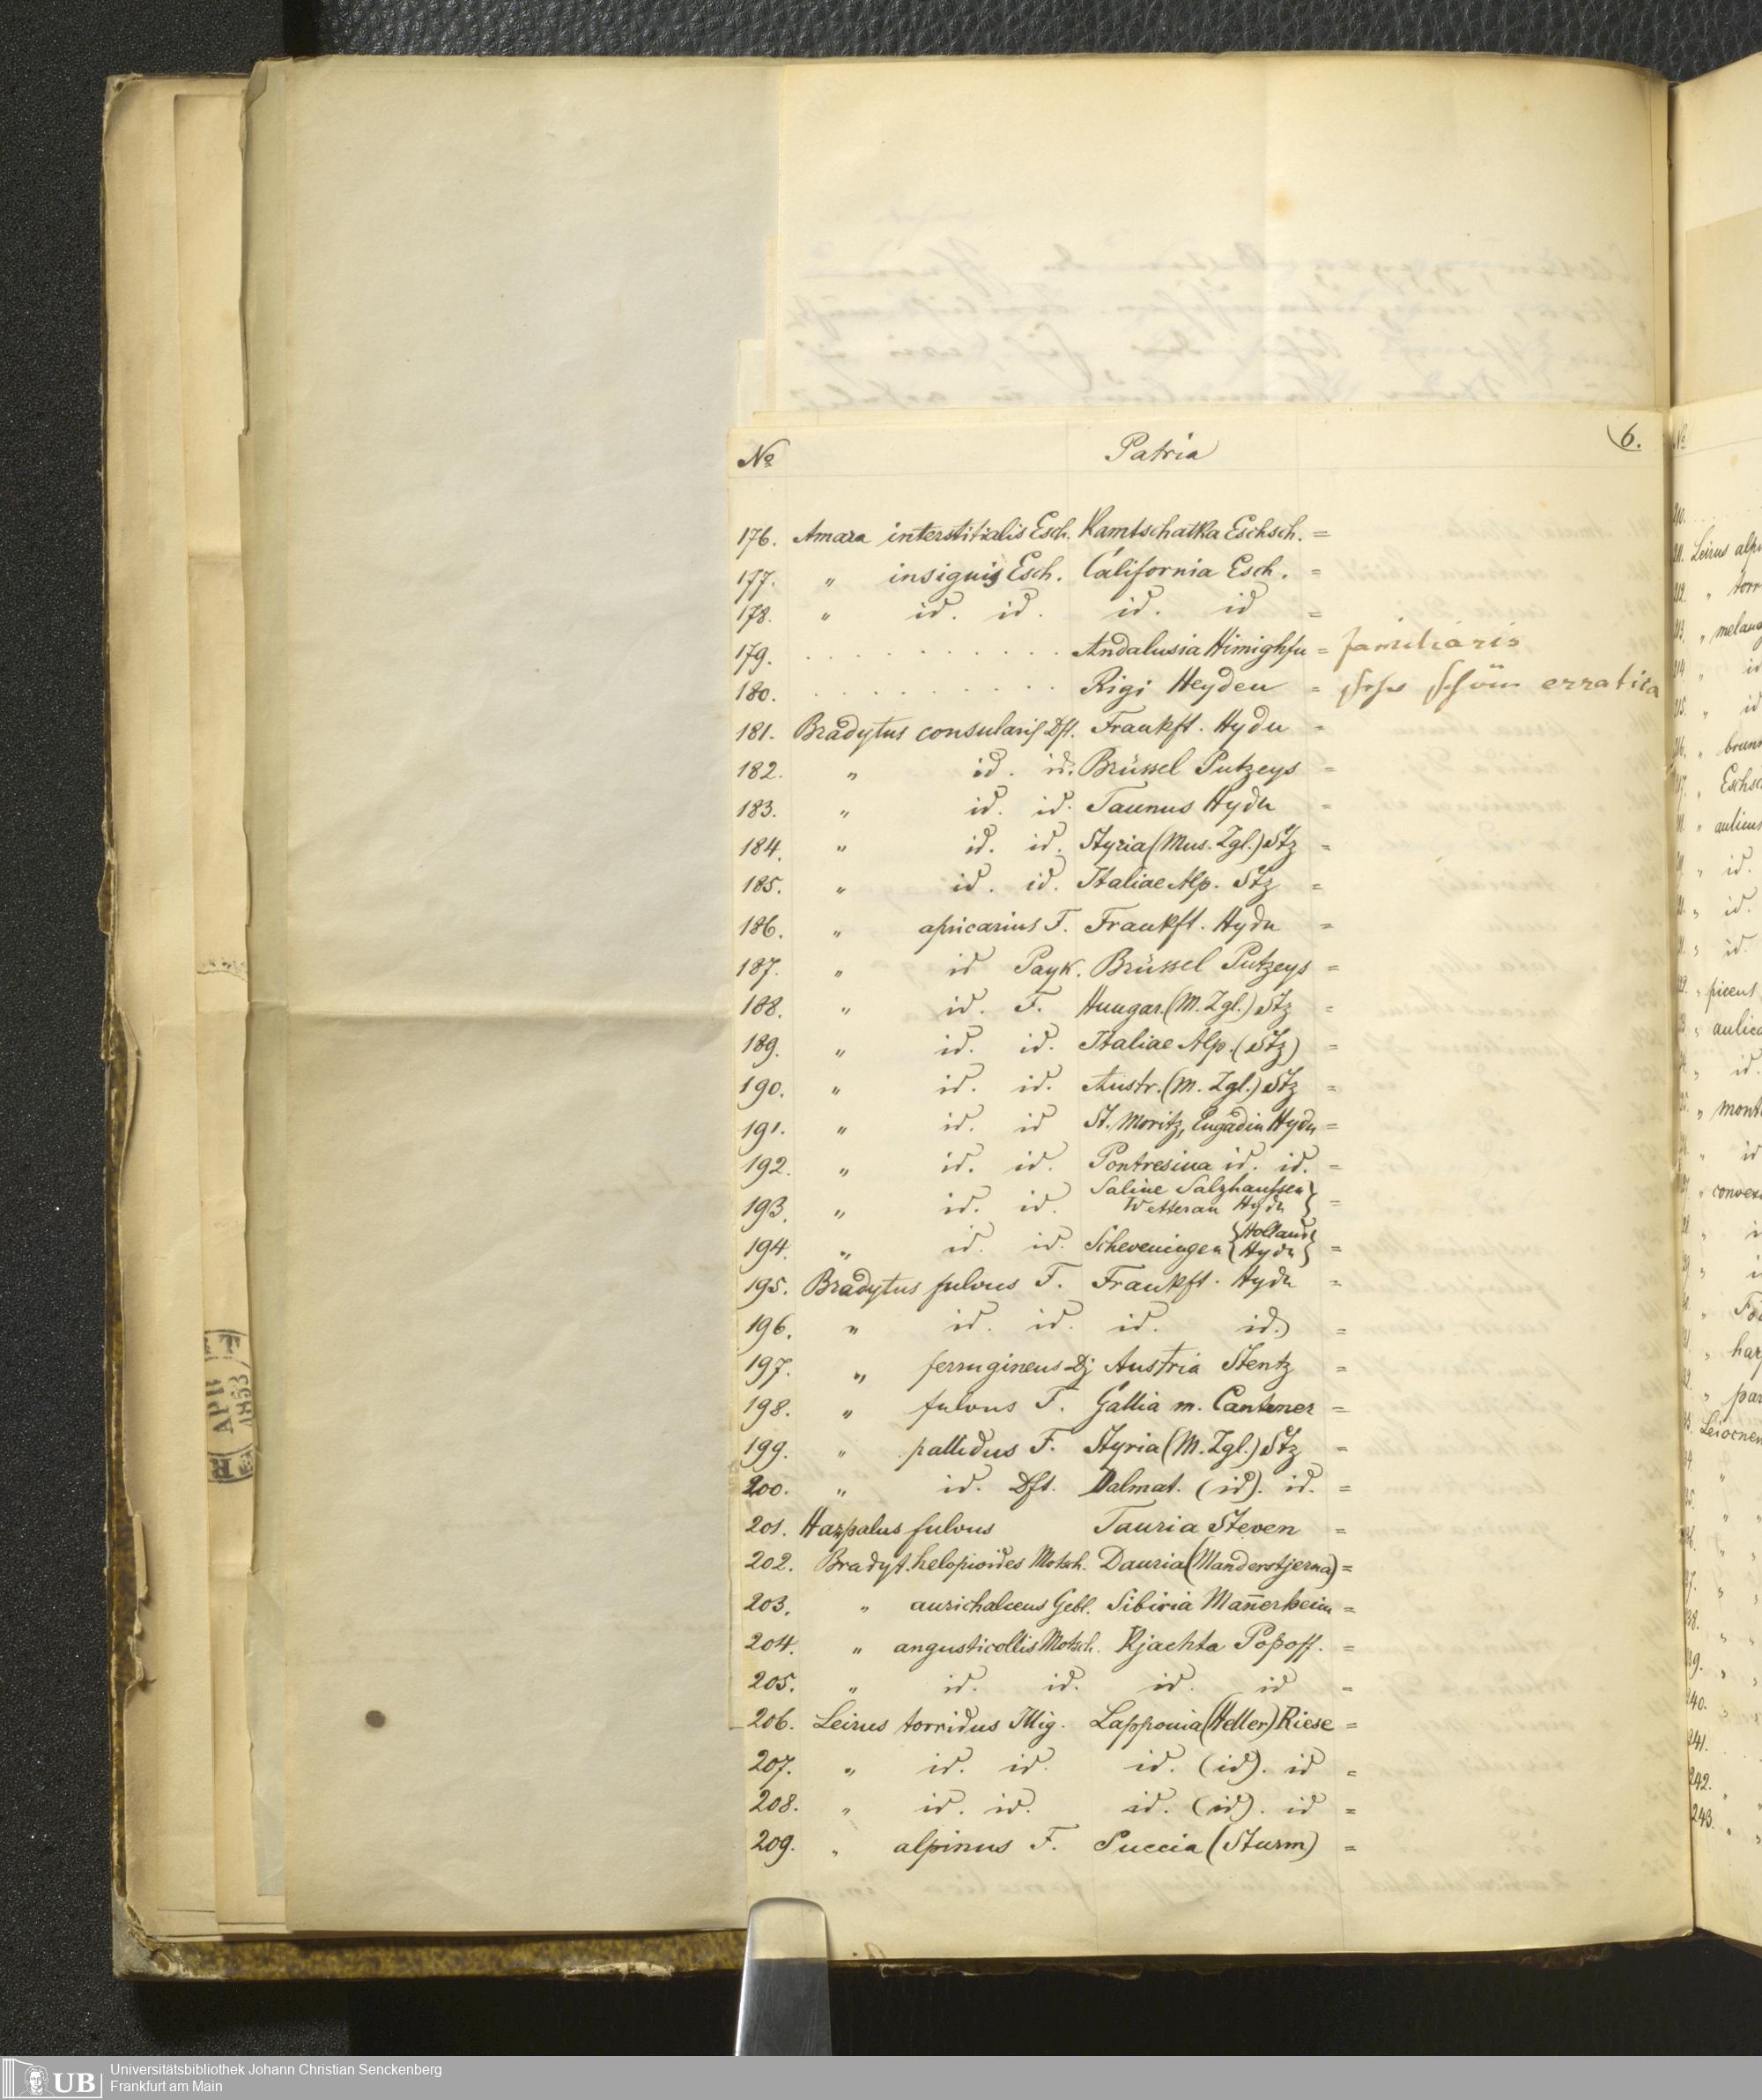 6.
No Patria
176. Amara interstitialis Esch. Kamtschatka Eschsch. =
177. " insignis Esch. California Esch. =
178. " id. id. id. id =
179. . . . . . . . . . . Andalusia Himighfn = familiaris
180. . . . . . . . . . . Rigi Heyden = sehr schön erratica
181. Bradytus consularis Dft. Frankft. Hydn =
182. " id. id. Brüssel Putzeys =
183. " id. id. Taunus Hydn =
184. " id. id. Styria (Mus. Zgl.) Stz =
185. " id. id. Italiae Alp. Stz =
186. " apricarius F. Frankft. Hydn =
187. " id Payk. Brüssel Putzeys =
188. " id. F. Hungar. (M. Zgl.) Stz =
189. " id. id. Italiae Alp. (Stz) =
190. " id. id. Austr. (M. Zgl.) Stz =
191. " id. id St. Moritz, Engadin Hydn =
192. " id. id. Pontresina id. id. =
193. " id. id. Saline Salzhaussen
Wetterau Hydn } =
194. " id. id. Scheveningen { Holland
Hydn } =
195. Bradytus fulvus F. Frankft. Hydn =
196. " id. id. id. id. =
197. " ferrugineus Dj Austria Stentz =
198. " fulvus F. Gallia m. Cantener =
199. " pallidus F. Styria (M. Zgl.) Stz =
200. " id. Dft. Dalmat. (id). id. =
201. Harpalus fulvus Tauria Steven =
202. Bradyt. helopioides Motsch. Dauria (Manderstjerna) =
203. " aurichalceus Gebl. Sibiria Mañerheim =
204. " angusticollis Motsch. Kjachta Popoff. =
205. " id. id. id. id =
206. Leirus torridus Illig. Lapponia (Heller) Riese =
207. " id. id. id. (id). id =
208. " id. id. id. (id). id =
209. " alpinus F. Suecia (Sturm) =
APR
1853
No
Leirus alp
" torr
" melano
" id
" id
" brunn
" Eschsc
" aulicus
" id.
" id.
" id.
" piceus
" aulica
" id.
" mont
" id
" convex
" harp
" par
Leiocnem
240.
241.
242.
243.
UB Universitätsbibliothek Johann Christian Senckenberg
Frankfurt am Main